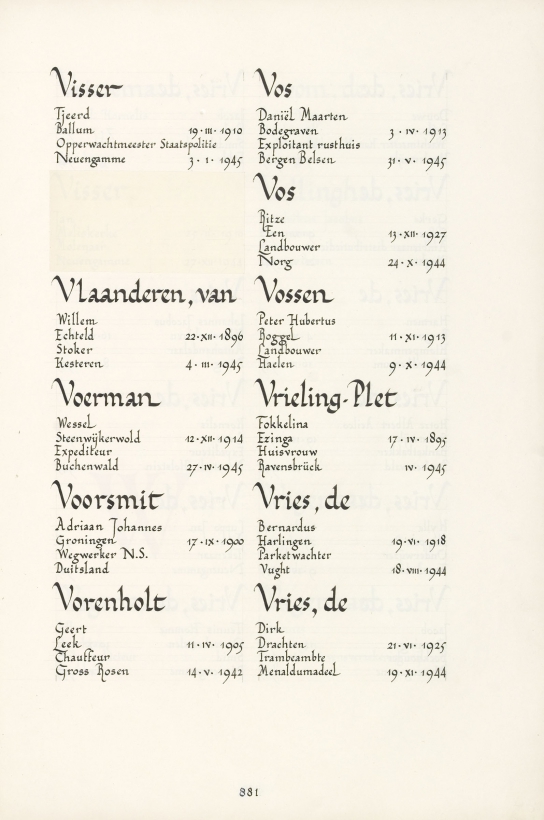 Visser
Tjeerd
Ballum 19·III·1910
Opperwachtmeester Staatspolitie
Neuengamme 3·I·1945
Vlaanderen, van
Willem
Echteld 22·XII·1896
Stoker
Kesteren 4·III·1945
Voerman
Wessel
Steenwijkerwold 12·XII·1914
Expediteur
Buchenwald 27·IV·1945
Voorsmit
Adriaan Johannes
Groningen 17·IX·1900
Wegwerker N.S.
Duitsland
Vorenholt
Geert
Leek 11·IV·1905
Chauffeur
Gross Rosen 14·V·1942
Vos
Daniël Maarten
Bodegraven 3·IV·1913
Exploitant rusthuis
Bergen Belsen 31·V·1945
Vos
Ritze
Een 13·XII·1927
Landbouwer
Norg 24·X·1944
Vossen
Peter Hubertus
Roggel 11·XI·1913
Landbouwer
Haelen 9·X·1944
Vrieling-Plet
Fokkelina
Ezinga 17·IV·1895
Huisvrouw
Ravensbrück IV·1945
Vries, de
Bernardus
Harlingen 19·VI·1918
Parketwachter
Vught 18·VIII·1944
Vries, de
Dirk
Drachten 21·VI·1925
Trambeambte
Menaldumadeel 19·XI·1944
331